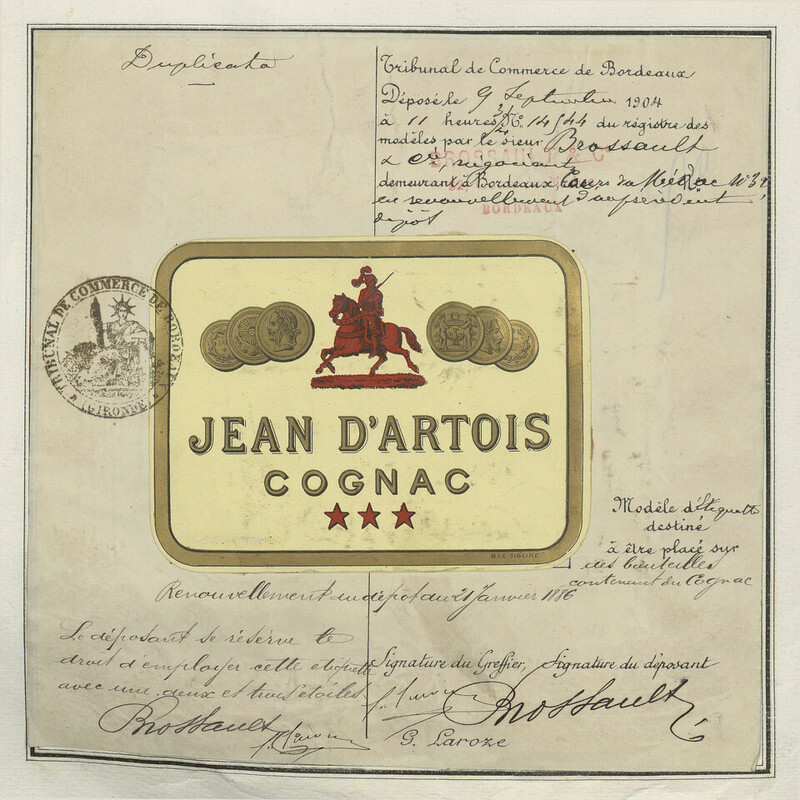 Duplicata
Tribunal de Commerce de Bordeaux
Déposé le 9 Septembre 1904
à 11 heures 1/2 N° 14544 du registre des
modèles par le sieur Brossault
& Cie, négociants
demeurant à Bordeaux Cours du Médoc N° 32
en renouvellement d'un précédent
dépôt
BROSSAULT & Cie
BORDEAUX
TRIBUNAL DE COMMERCE DE BORDEAUX
GIRONDE
JEAN D'ARTOIS
COGNAC
Modèle d'Etiquette
destiné
à être placé sur
des bouteilles
contenant du Cognac
Renouvellement du dépot du 21 Janvier 1886
Le déposant se réserve le
droit d'employer cette etiquette
avec une, deux et trois étoiles.
Signature du Greffier, Signature du déposant
Brossault
Brossault
G. Laroze